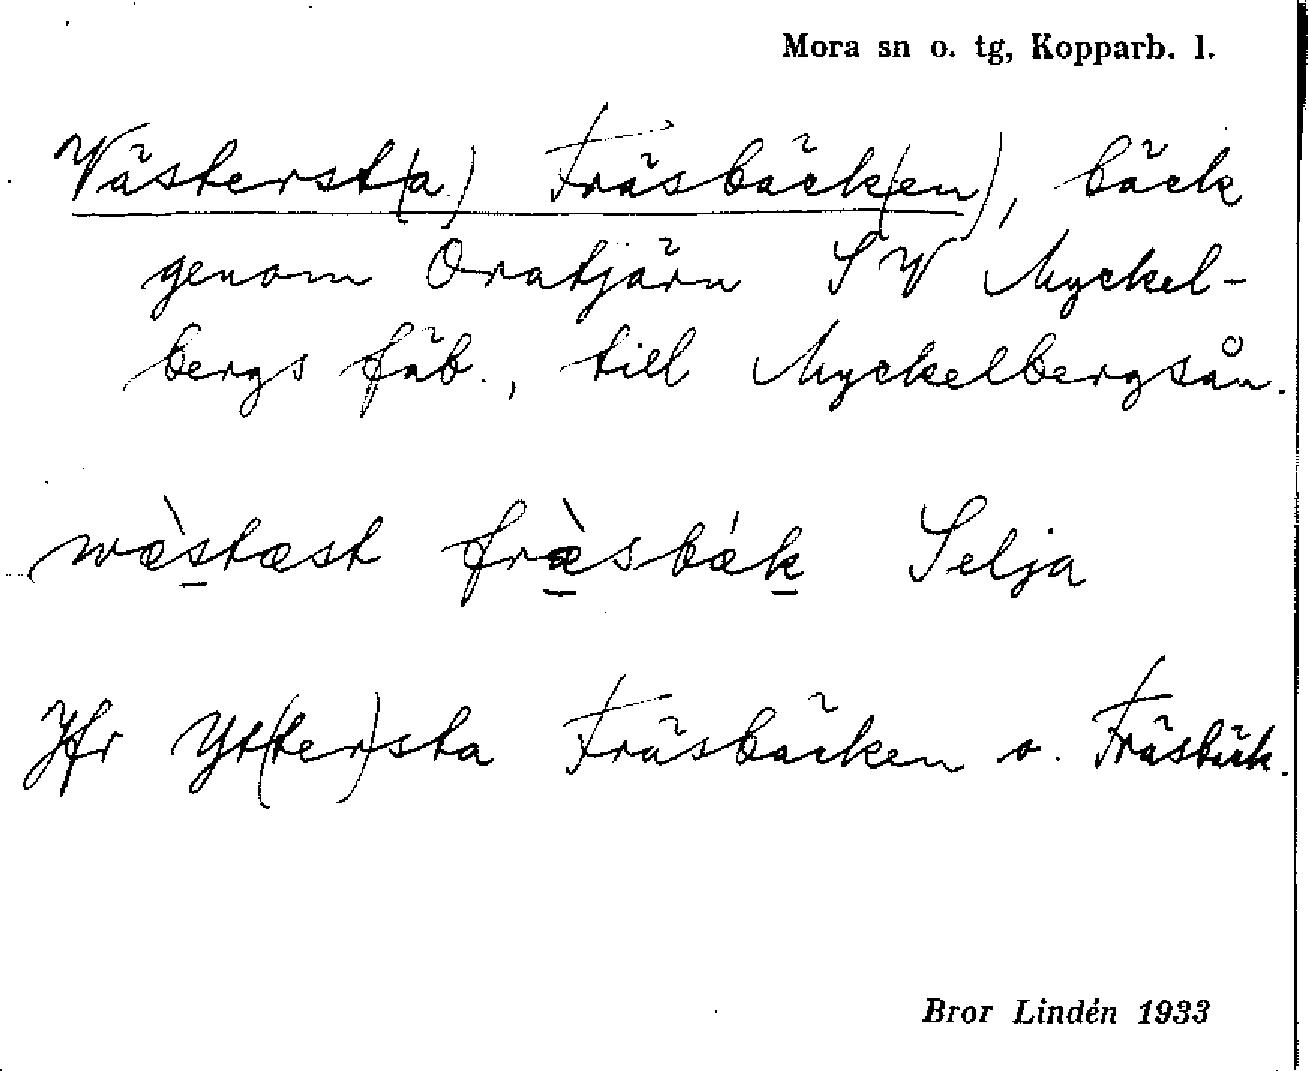 Mora sn o. tg, Kopparb. l.
Västerst(a) Fräsbäck(en), bäck
genom Oratjärn SV Myckel-
bergs fäb., till Myckelbergsån.
wæ̀stæst fræ̀sbák Selja
Jfr Yt(ter)sta Fräsbäcken o. Fräsbäck.
Bror Lindén 1933